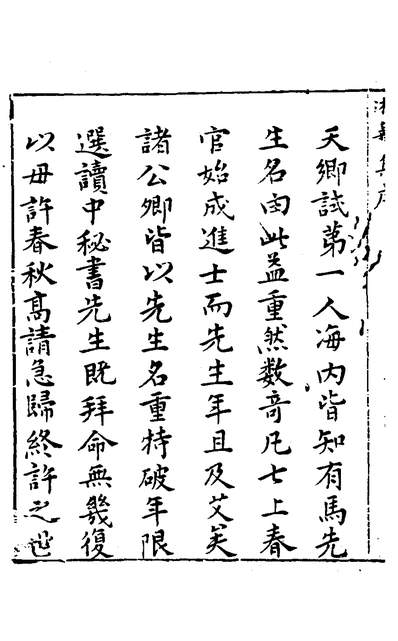 天鄉試第一人海内皆知有馬先
生名由此益重然數竒凡七上春
官始成進士而先生年且及艾矣
諸公卿皆以先生名重特破年限
選讀中秘書先生既拜命無幾復
以毋許春秋髙請急歸終許之世